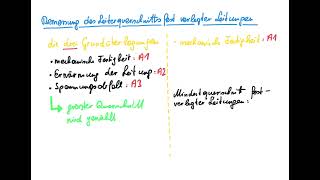 Bemessung des Leiterquerschnitts fest verlegter Leitungen
die drei Grundüberlegungen
• mechanische Festigkeit: A1
• Erwärmung der Leitung: A2
• Spannungsabfall: A3
↳ grösster Querschnitt
wird gewählt
• mechanische Festigkeit: A1
Mindestquerschnitt fest-
verlegter Leitungen: